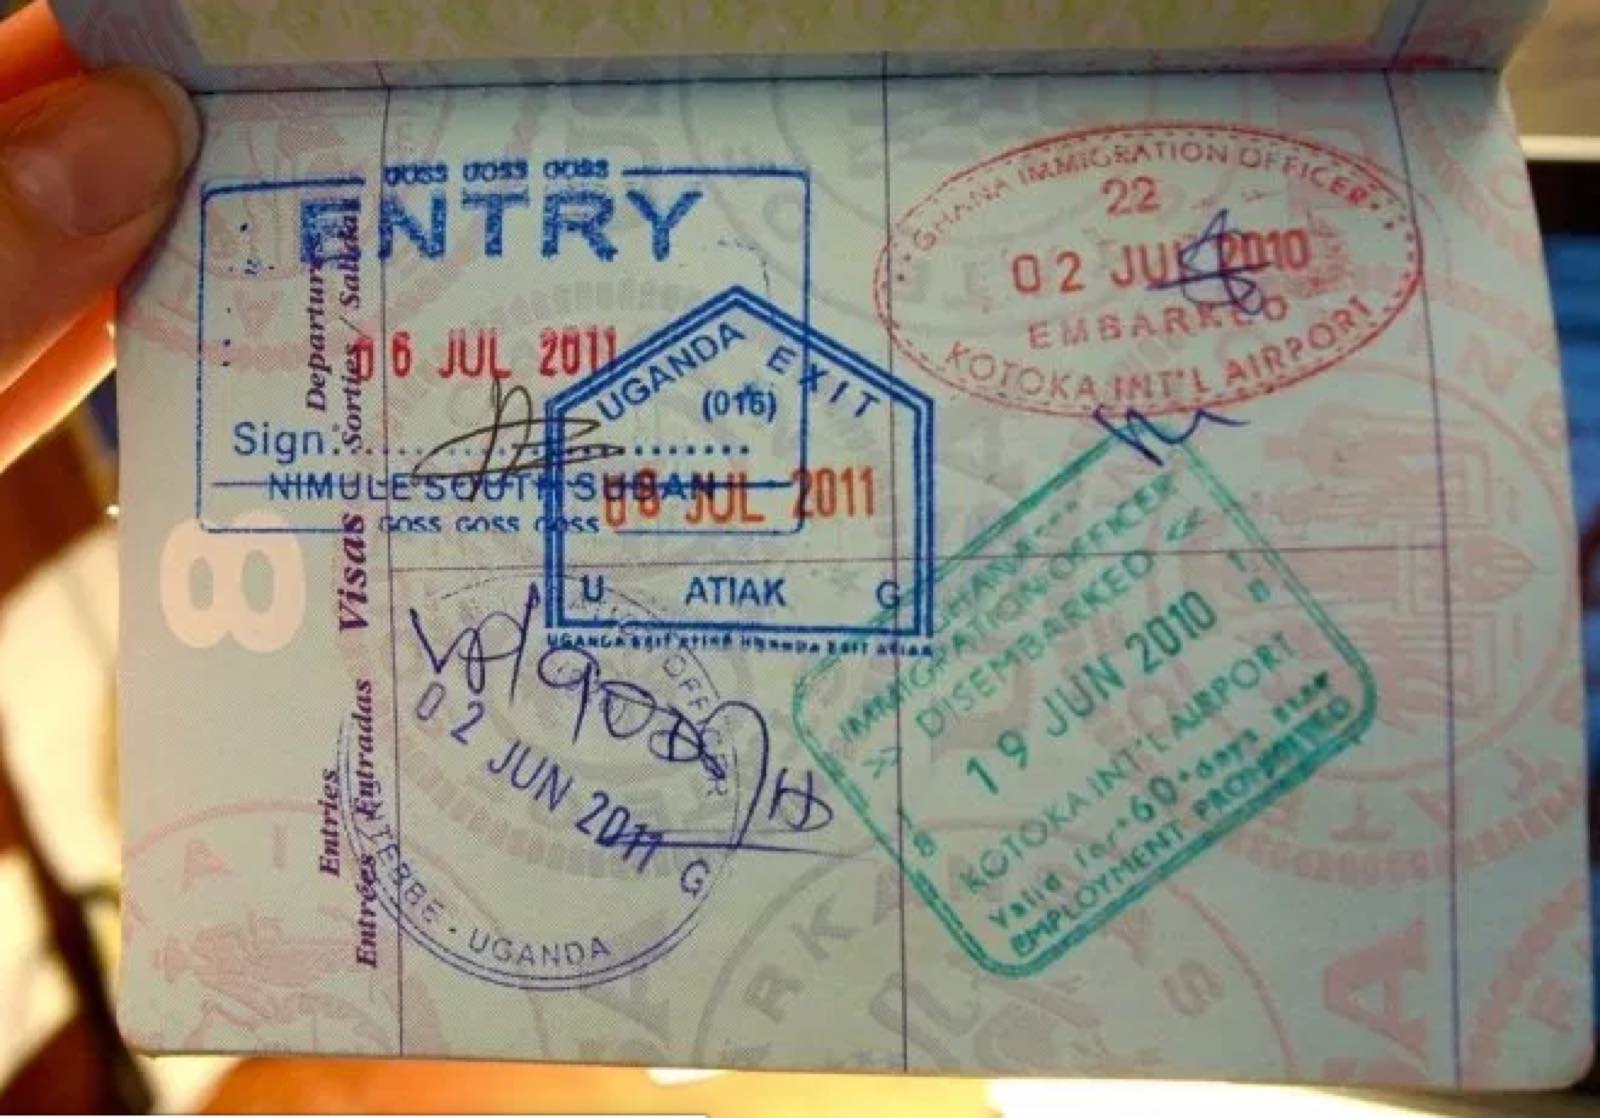 GOSS GOSS GOSS
ENTRY
06 JUL 2011
Sign.
NIMULE SOUTH SUDAN
GOSS GOSS GOSS
UGANDA EXIT
(016)
06 JUL 2011
U ATIAK G
GHANA IMMIGRATION OFFICER
22
02 JUL 2010
EMBARKED
KOTOKA INT'L AIRPORT
GHANA
IMMIGRATION OFFICER
>> DISEMBARKED <<
19 JUN 2010
KOTOKA INT'L AIRPORT
Valid for *60* days
EMPLOYMENT PROHIBITED
OFFICER
02 JUN 2011
G
ENTEBBE - UGANDA
Departures
Sorties / Salidas
Visas
Entries
Entrées / Entradas
8